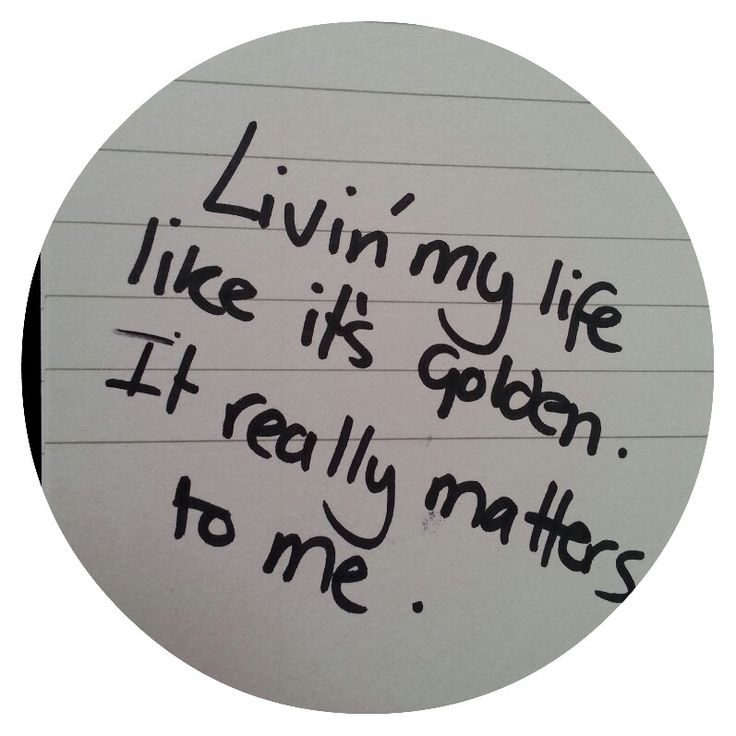 Livin' my life
like it's Golden.
It really matters
to me.